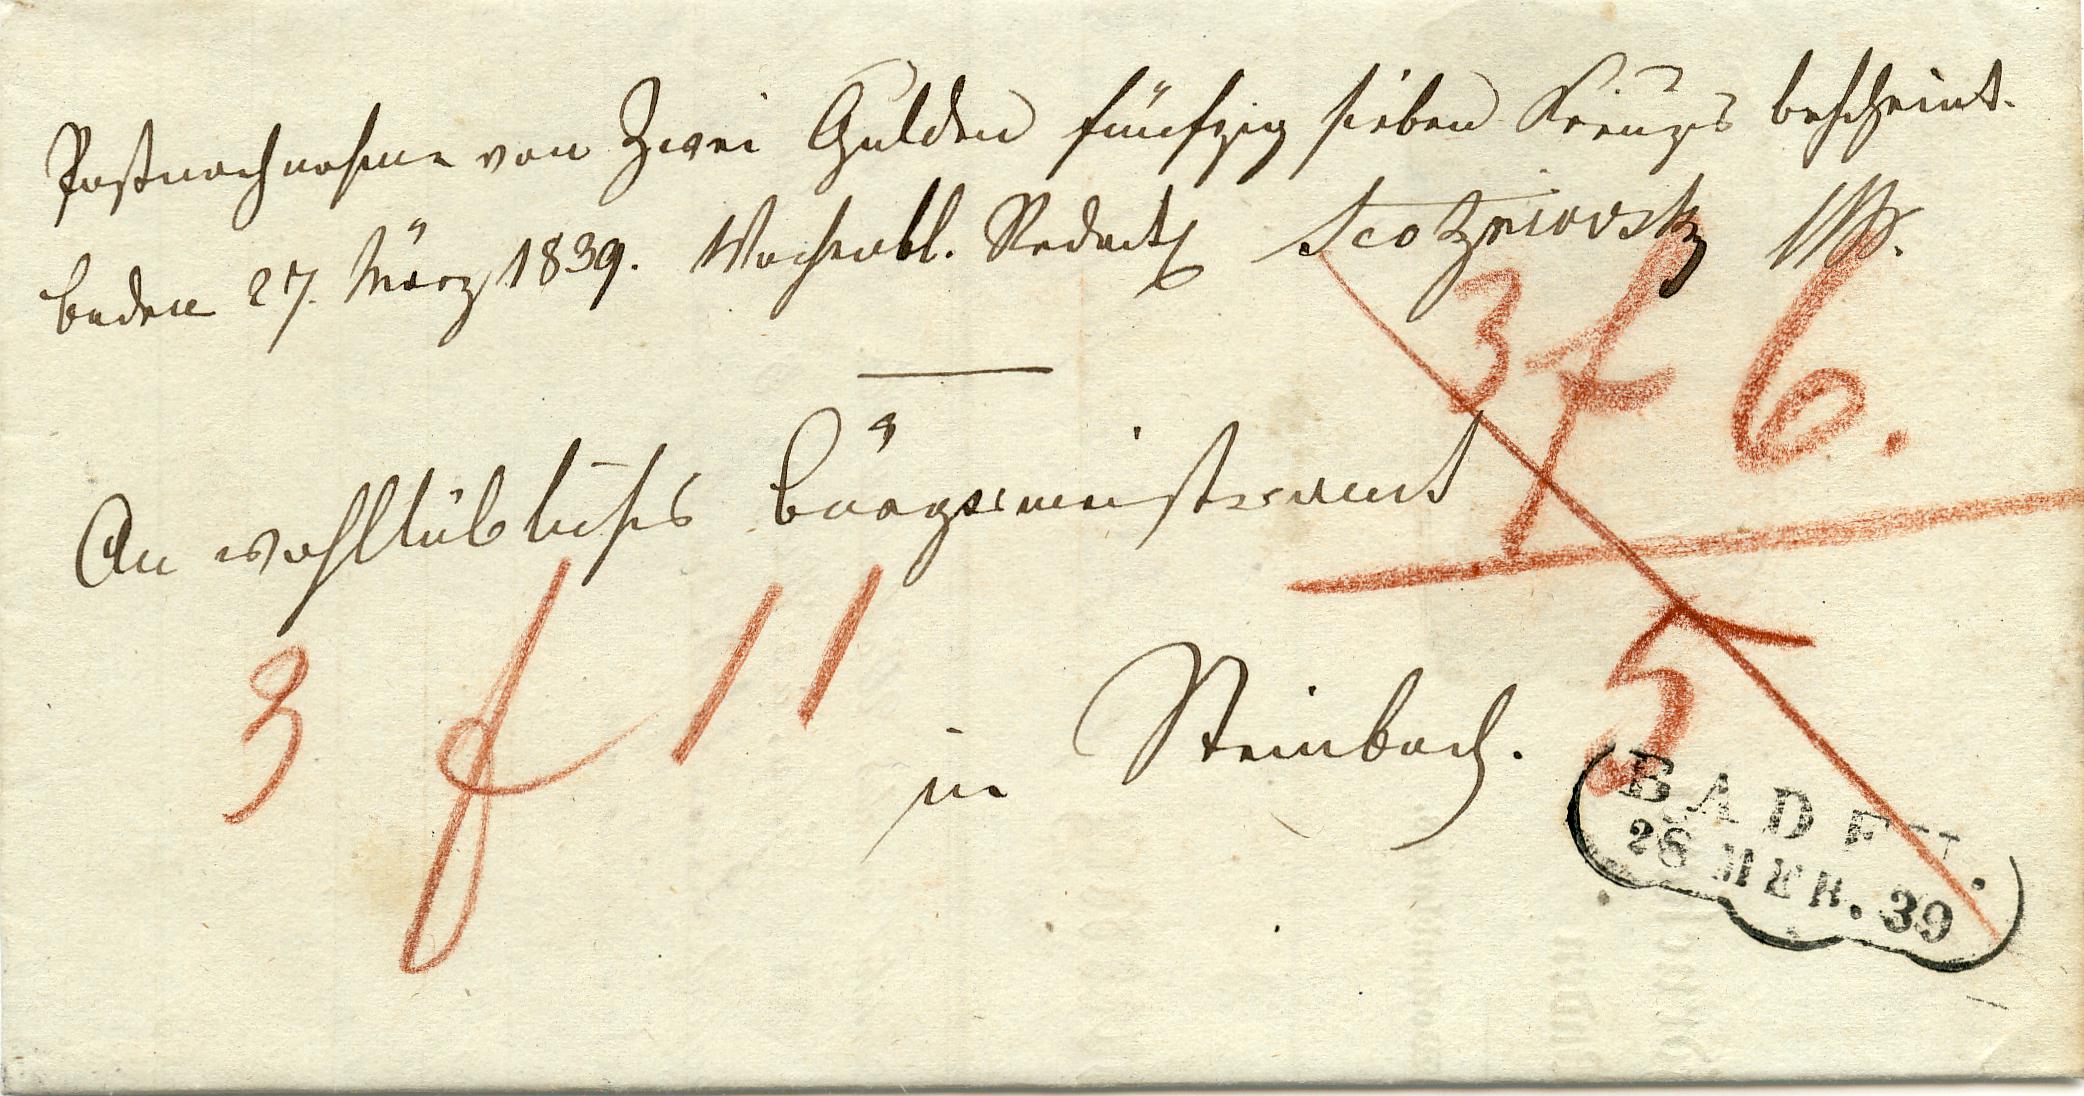 Postnachnahme von Zwei Gulden fünfzig sieben Kreuzer bescheint.
Baden 27. März 1839. Wochenbl. Redact
An wohllöbliches Bürgermeisteramt
3 f 6.
5
3 f 11
in Steinbach.
BADEN.
28 MER. 39